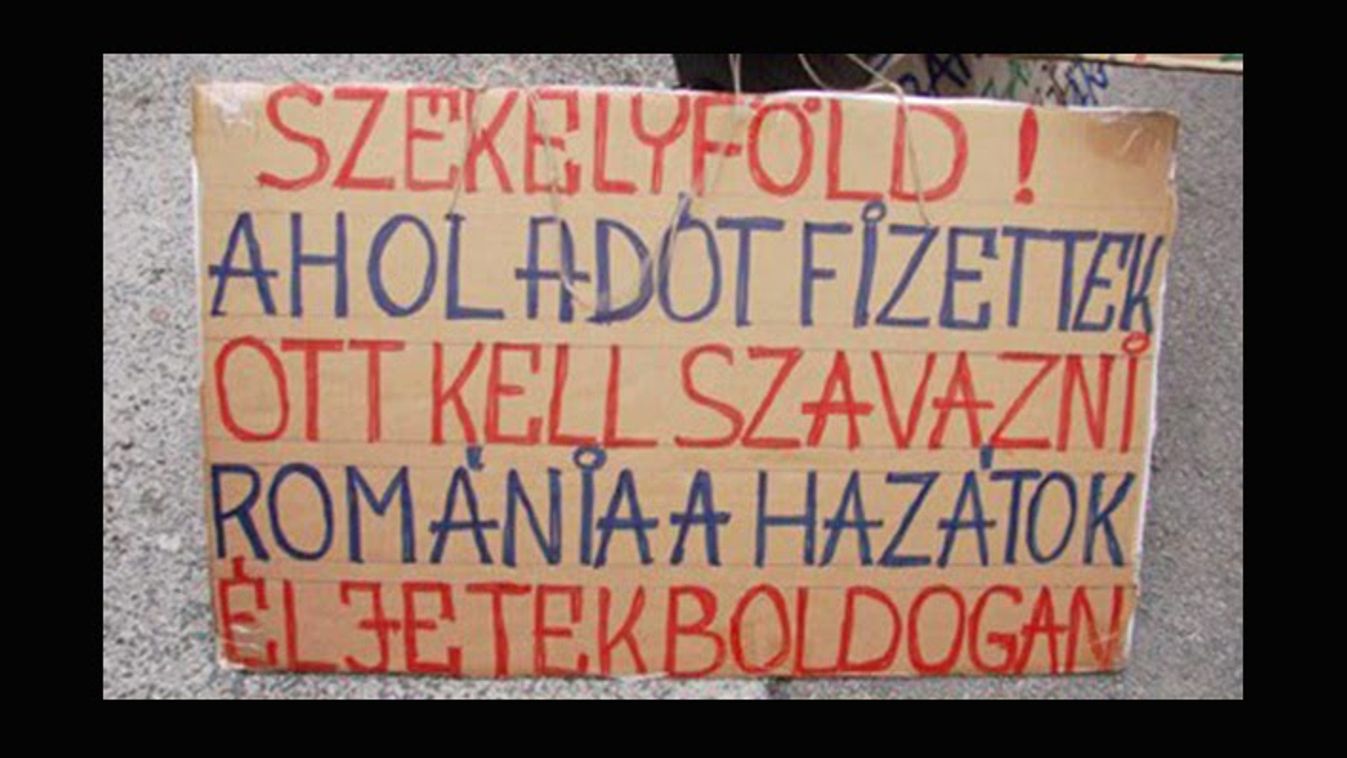 SZÉKELYFÖLD !
AHOL ADÓT FIZETTEK
OTT KELL SZAVAZNI
ROMÁNIA A HAZÁTOK
ÉLJETEK BOLDOGAN